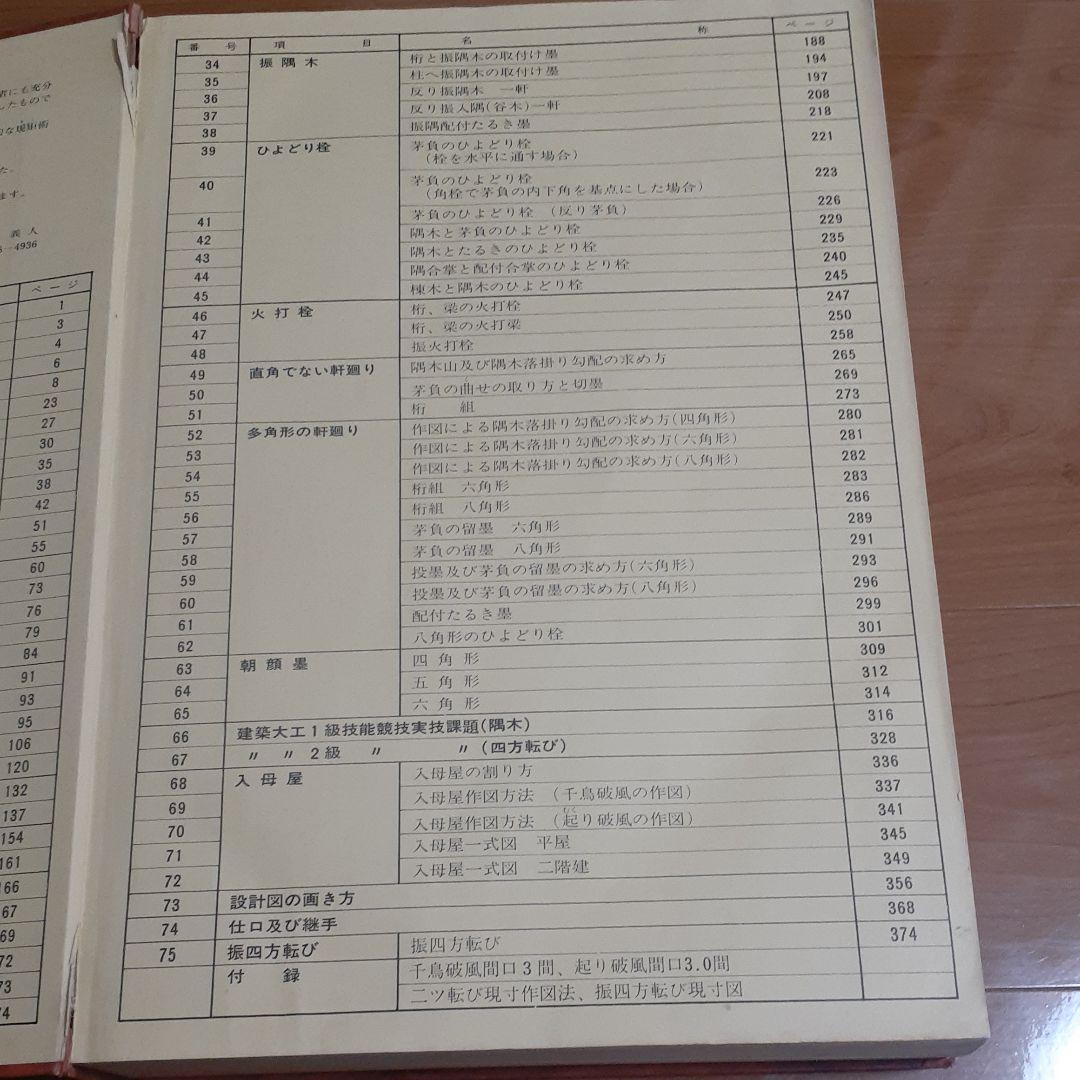 者にも充分
したもので
的な規矩術
た。
ます。
義人
6-4936
ページ
1
3
4
6
8
23
27
30
35
38
42
51
55
60
73
76
79
84
91
93
95
106
120
132
137
154
161
166
67
69
72
73
74
番号 項目 名称 ページ
34 振隅木 桁と振隅木の取付け墨 188
35 柱へ振隅木の取付け墨 194
36 反り振隅木 一軒 197
37 反り振入隅(谷木)一軒 208
38 振隅配付たるき墨 218
39 ひよどり栓 茅負のひよどり栓 221
(栓を水平に通す場合)
40 茅負のひよどり栓 223
(角栓で茅負の内下角を基点にした場合)
41 茅負のひよどり栓 (反り茅負) 226
42 隅木と茅負のひよどり栓 229
43 隅木とたるきのひよどり栓 235
44 隅合掌と配付合掌のひよどり栓 240
45 棟木と隅木のひよどり栓 245
46 火打栓 桁、梁の火打栓 247
47 桁、梁の火打梁 250
48 振火打栓 258
49 直角でない軒廻り 隅木山及び隅木落掛り勾配の求め方 265
50 茅負の曲せの取り方と切墨 269
51 桁組 273
52 多角形の軒廻り 作図による隅木落掛り勾配の求め方(四角形) 280
53 作図による隅木落掛り勾配の求め方(六角形) 281
54 作図による隅木落掛り勾配の求め方(八角形) 282
55 桁組 六角形 283
56 桁組 八角形 286
57 茅負の留墨 六角形 289
58 茅負の留墨 八角形 291
59 投墨及び茅負の留墨の求め方(六角形) 293
60 投墨及び茅負の留墨の求め方(八角形) 296
61 配付たるき墨 299
62 八角形のひよどり栓 301
63 朝顔墨 四角形 309
64 五角形 312
65 六角形 314
66 建築大工1級技能競技実技課題(隅木) 316
67 〃 〃 2級 〃 〃 (四方転び) 328
68 入母屋 入母屋の割り方 336
69 入母屋作図方法 (千鳥破風の作図) 337
70 入母屋作図方法 (起り破風の作図) 341
71 入母屋一式図 平屋 345
72 入母屋一式図 二階建 349
73 設計図の画き方 356
74 仕口及び継手 368
75 振四方転び 振四方転び 374
付録 千鳥破風間口3間、起り破風間口3.0間
二ツ転び現寸作図法、振四方転び現寸図